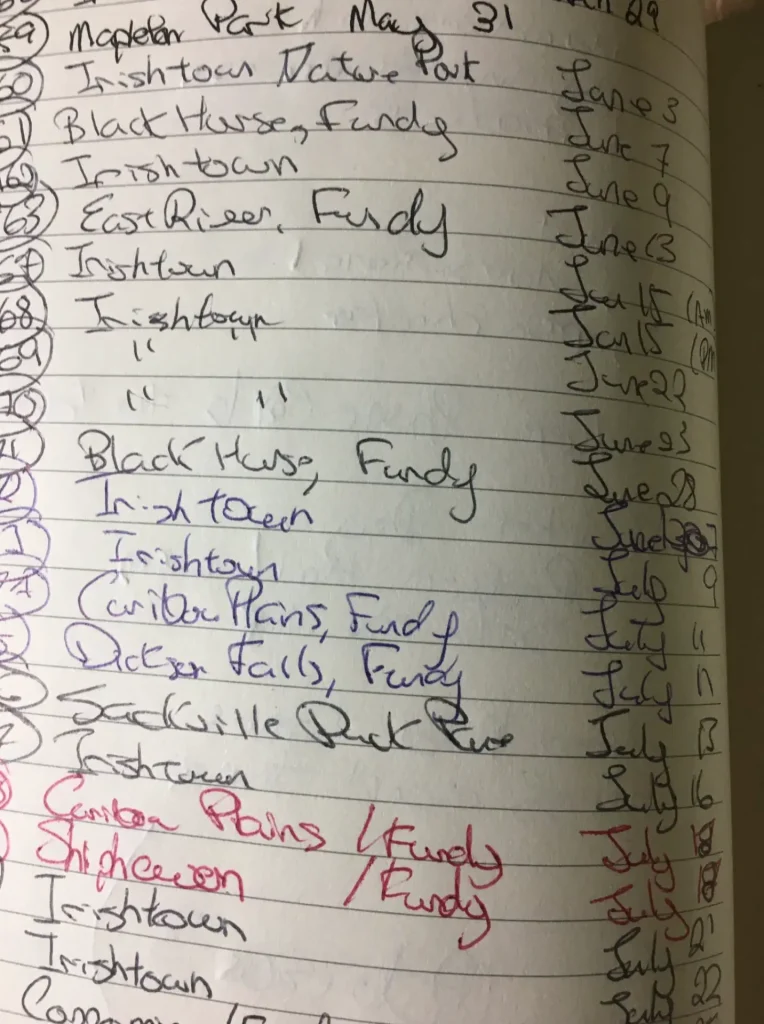 29
59 Mapleton Park May 31
60 Irishtown Nature Park June 3
61 Black Horse, Fundy June 7
62 Irishtown June 9
63 East River, Fundy June 13
67 Irishtown Jun 15 (Am
68 Irishtown Jun 15 (Pm
69 " " June 22
70 " " June 23
71 Black Horse, Fundy June 28
Irishtown June
Irishtown July 9
Caribou Plains, Fundy July 11
Dickson Falls, Fundy July 11
Sackville Duck Pond July 13
Irishtown July 16
Caribou Plains / Fundy July
/ Fundy July
Irishtown July 21
Irishtown July 22